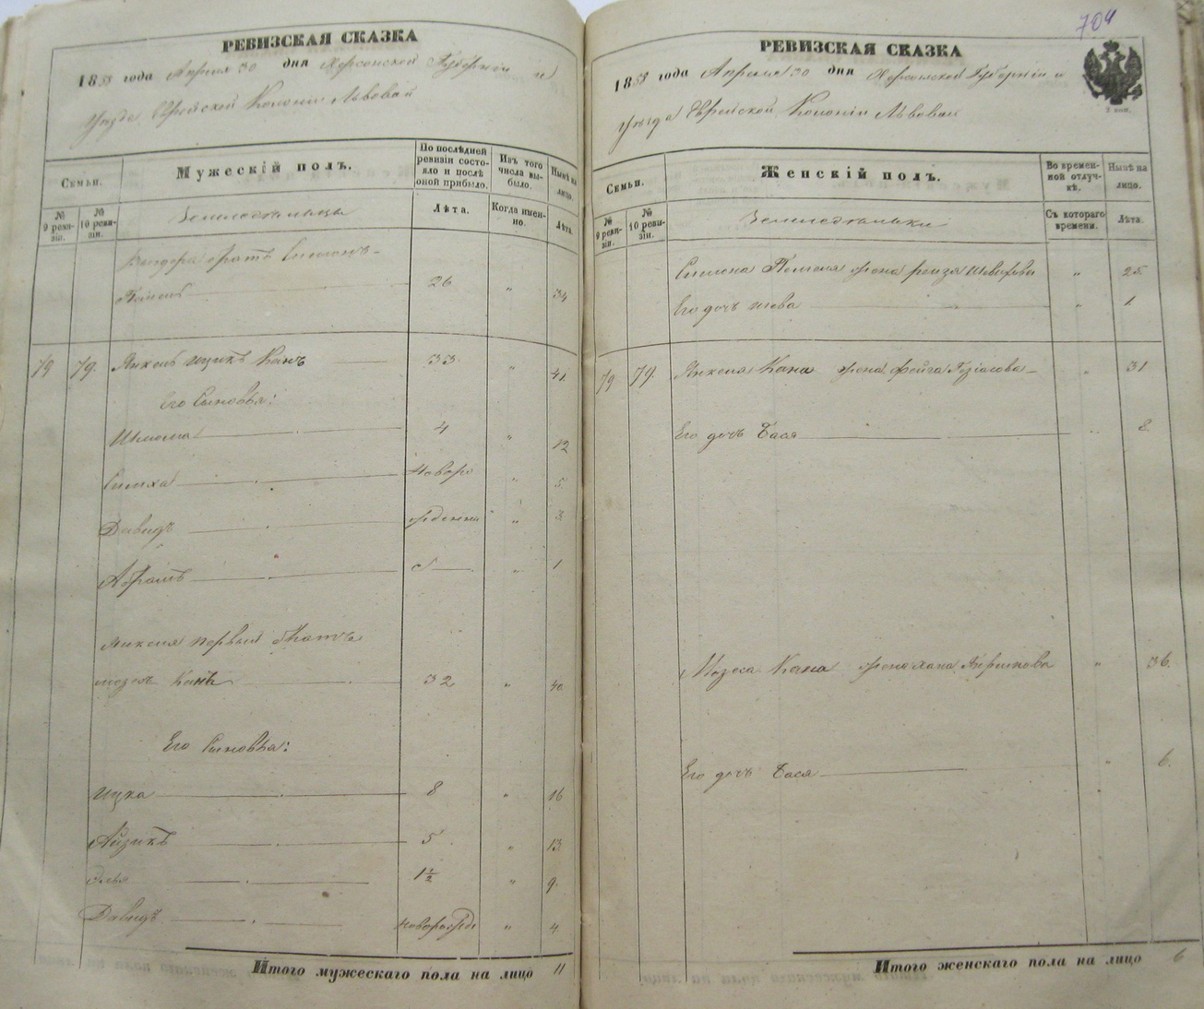 РЕВИЗСКАЯ СКАЗКА
1858 года Апреля 30 дня Херсонской Губерніи и
Уезда Еврейской Колоніи Львовой
Семьи.
Мужескій полъ.
По послѣдней ревизіи состояло и послѣ оной прибыло.
Изъ того числа выбыло.
Нынѣ на лицо.
№ 9 ревизіи.
№ 10 ревизіи.
Земледельцы
Лѣта.
Когда именно.
Лѣта.
братъ
26 " 34
79 79. Янкель Ицикъ Канъ 33 " 41
Его Сыновья:
Шлиома 4 " 12
Симха Новоро " 5
Давидъ жденны " 3
Абрамъ " 1
первый братъ
Канъ 32 " 40
Его Сыновья:
Ицка 8 " 16
Айзикъ 5 " 13
Элья 1½ " 9
Давидъ новорожде " 4
Итого мужескаго пола на лицо 11
704
РЕВИЗСКАЯ СКАЗКА
1858 года Апреля 30 дня Херсонской Губерніи и
Уезда Еврейской Колоніи Львовой
2 коп.
Семьи.
Женскій полъ.
Во временной отлучкѣ.
Нынѣ на лицо.
№ 9 ревизіи.
№ 10 ревизіи.
Земледельки
Съ котораго времени.
Лѣта.
жена " 25
Его дочь " 1
79 79. Янкеля Кана жена Фейга " 31
Его дочь Бася " 8
Мозеса Кана жена Хана " 36
Его дочь Бася " 6
Итого женскаго пола на лицо 6